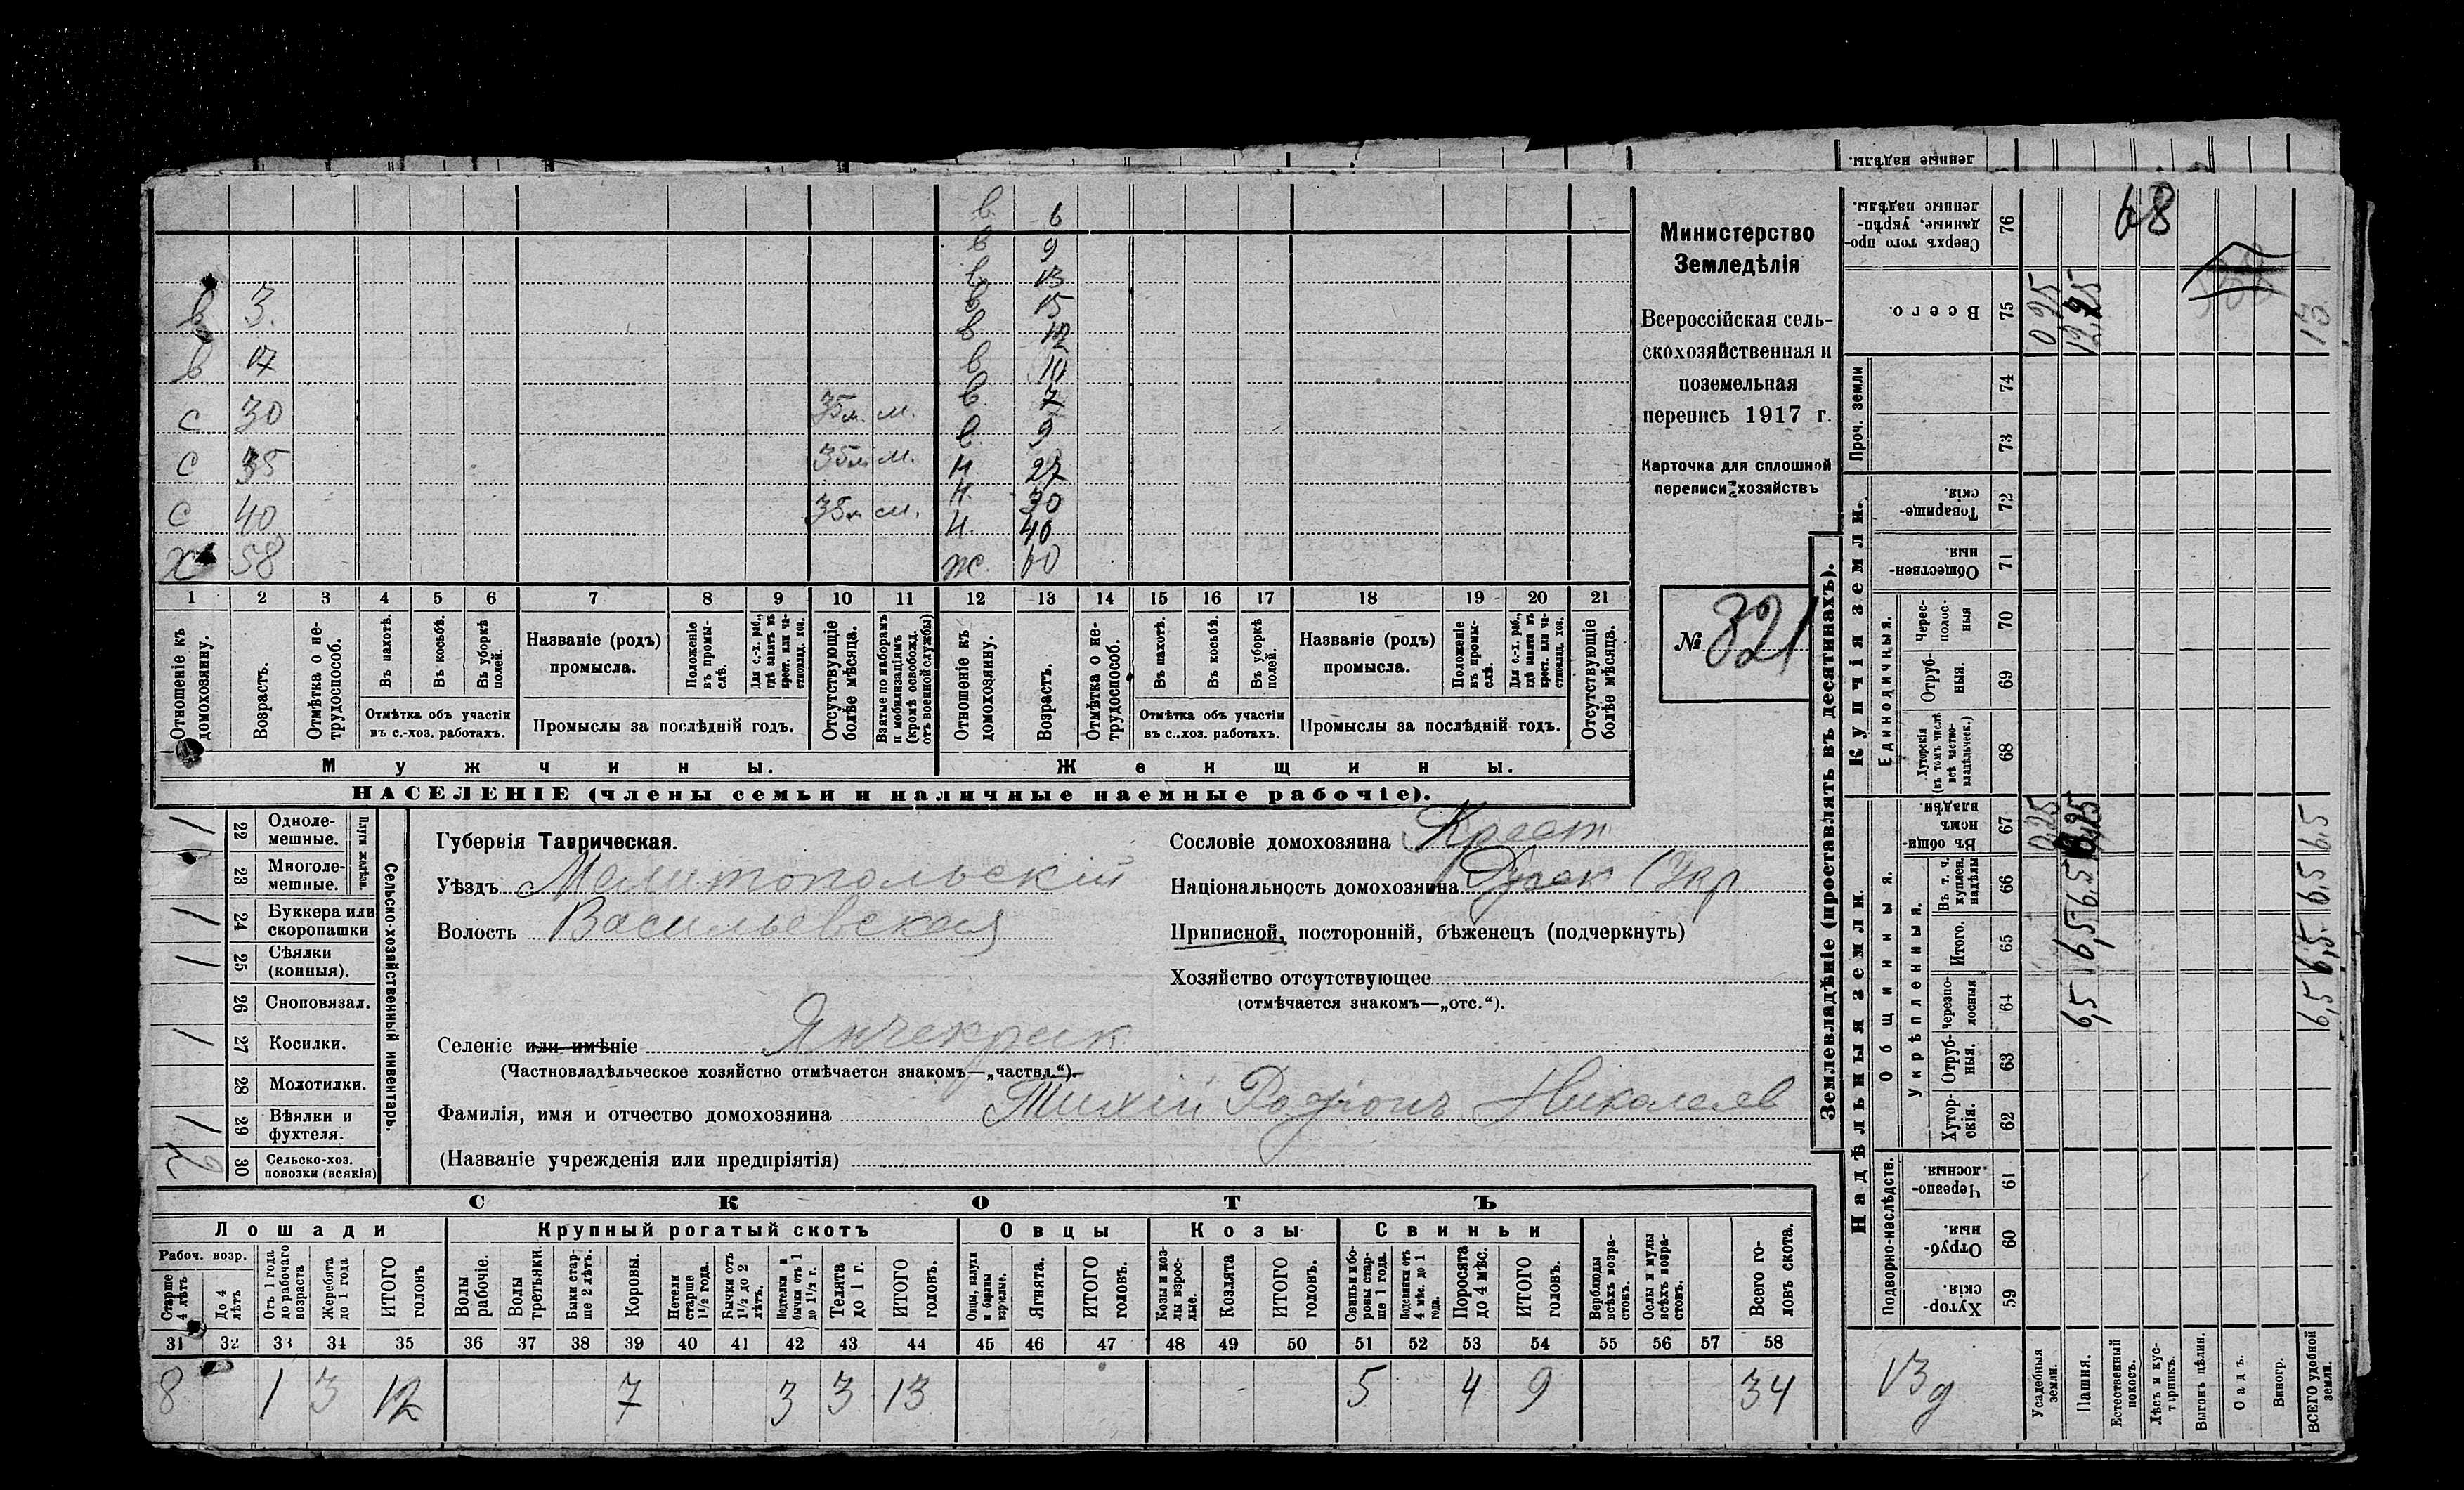 в. 6
в 9
в 13
в 3. в 15
в. 12
в 17 в 10
в. 7
с 30 35 м. м. в. 9
с 35 35 м м. н 27
н. 30
с 40 35 м м. н. 40
х 58 ж. 60
1 2 3 4 5 6 7 8 9 10 11 12 13 14 15 16 17 18 19 20 21
Отношеніе къ домохозяину.
Возрастъ.
Отмѣтка о не-
трудоспособ.
Въ пахотѣ.
Въ косьбѣ.
Въ уборкѣ полей.
Отмѣтка объ участіи
въ с.-хоз. работахъ.
Названіе (родъ)
промысла.
Положеніе въ промы-
слѣ.
Для с.-х. раб.,
гдѣ занятъ въ
крест. или ча-
стновлад. хоз.
Промыслы за послѣдній годъ.
Отсутствующіе
болѣе мѣсяца.
Взятые по наборамъ
и мобилизаціямъ
(кромѣ освобожд.
отъ военной службы)
Отношеніе къ
домохозяину.
Возрастъ.
Отмѣтка о не-
трудоспособ.
Въ пахотѣ.
Въ косьбѣ.
Въ уборкѣ
полей.
Отмѣтка объ участіи
въ с..хоз. работахъ.
Названіе (родъ)
промысла.
Положеніе
въ промы-
слѣ.
Для с.-х. раб.,
гдѣ занятъ въ
крест. или ча-
стновлад. хоз.
Промыслы за послѣдній годъ.
Отсутствующіе
болѣе мѣсяца.
Мужчины.
Женщины.
НАСЕЛЕНІЕ (члены семьи и наличные наемные рабочіе).
Министерство
Земледѣлія
Всероссійская сель-
скохозяйственная и
поземельная
перепись 1917 г.
Карточка для сплошной
переписи хозяйствъ
№ 821
Сельско-хозяйственный инвентарь.
Плуги желѣзн.
1 22 Одноле-
мешные.
23 Многоле-
мешные.
1 24 Буккера или
скоропашки
1 25 Сѣялки
(конныя).
26 Сноповязал.
1 27 Косилки.
28 Молотилки.
1 29 Вѣялки и
фухтеля.
2 30 Сельско-хоз.
повозки (всякія)
Губернія Таврическая.
Уѣздъ Мелитопольскій
Волость Васильевская
Селеніе или имѣніе Янчекрак
(Частновладѣльческое хозяйство отмѣчается знакомъ—„частвл.“).
Фамилія, имя и отчество домохозяина Тихій Родіонъ Николаев
(Названіе учрежденія или предпріятія)
Сословіе домохозяина Крест
Національность домохозяина Русск (Укр
Приписной, посторонній, бѣженецъ (подчеркнуть)
Хозяйство отсутствующее
(отмѣчается знакомъ—„отс.“).
СКОТЪ
Лошади
Крупный рогатый скотъ
Овцы
Козы
Свиньи
Рабоч. возр.
Старше
4 лѣтъ
До 4
лѣтъ
Отъ 1 года
до рабочаго
возраста
Жеребята
до 1 года
ИТОГО
головъ
Волы
рабочіе.
Волы
третьяки.
Быки стар-
ше 2 лѣтъ.
Коровы.
Нетели
старше
1½ года.
Бычки отъ
1½ до 2
лѣтъ.
Подтелки и
бычки отъ 1
до 1½ г.
Телята
до 1 г.
ИТОГО
головъ.
Овцы, валухи
и бараны
взрослые.
Ягнята.
ИТОГО
головъ.
Козы и коз-
лы взрос-
лые.
Козлята
ИТОГО
головъ.
Свиньи и бо-
ровы стар-
ше 1 года.
Подсвинки отъ
4 мѣс. до 1
года.
Поросята
до 4 мѣс.
ИТОГО
головъ.
Верблюды
всѣхъ возра-
стовъ.
Ослы и мулы
всѣхъ возра-
стовъ.
Всего го-
ловъ скота.
31 32 33 34 35 36 37 38 39 40 41 42 43 44 45 46 47 48 49 50 51 52 53 54 55 56 57 58
8 1 3 12 7 3 3 13 5 4 9 34
Землевладѣніе (проставлять въ десятинахъ).
ленные надѣлы.
Сверхъ того про-
данные, укрѣп-
ленные надѣлы. 76
68
Всего. 75
0,25 12,75 13
Проч. земли
74
73
Купчія земли.
Товарище-
скія. 72
Обществен-
ныя. 71
Единоличныя.
Черес-
полос-
ныя 70
Отруб-
ныя. 69
Хуторскія
(въ томъ числѣ
всѣ частно-
владѣльческ.) 68
Надѣльныя земли.
Общинныя.
Въ общи-
номъ
владѣн. 67
0,25 6,25 6,5
Укрѣпленныя.
Въ т. ч.
куплен.
надѣлы 66
6,5 6,5
Итого. 65
6,5 6,5
Черезпо-
лосныя 64
6,5 6,5
Отруб-
ныя. 63
Хутор-
скія. 62
Подворно-наслѣдств.
Черезпо-
лосныя. 61
Отруб-
ныя. 60
Хутор-
скія. 59
13 д
Усадебныя
земли.
Пашня.
Естественный
покосъ.
Лѣсъ и кус-
тарникъ.
Выгонъ цѣлин.
Садъ.
Виногр.
ВСЕГО удобной
земли.